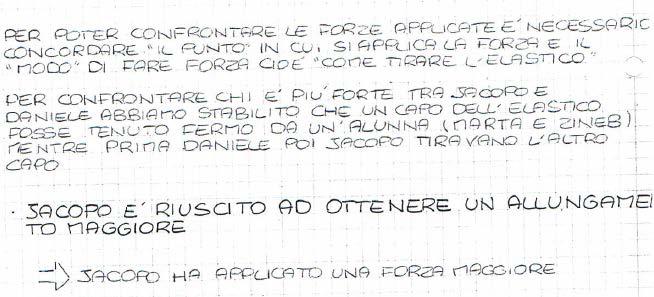 PER POTER CONFRONTARE LE FORZE APPLICATE E' NECESSARIO
CONCORDARE "IL PUNTO" IN CUI SI APPLICA LA FORZA E IL
"MODO" DI FARE FORZA CIOÈ "COME TIRARE L'ELASTICO"
PER CONFRONTARE CHI E' PIU' FORTE TRA JACOPO E
DANIELE ABBIAMO STABILITO CHE UN CAPO DELL'ELASTICO
FOSSE TENUTO FERMO DA UN'ALUNNA (MARTA E ZINEB)
MENTRE PRIMA DANIELE POI JACOPO TIRAVANO L'ALTRO
CAPO
· JACOPO E' RIUSCITO AD OTTENERE UN ALLUNGAME
TO MAGGIORE
⇒ JACOPO HA APPLICATO UNA FORZA MAGGIORE